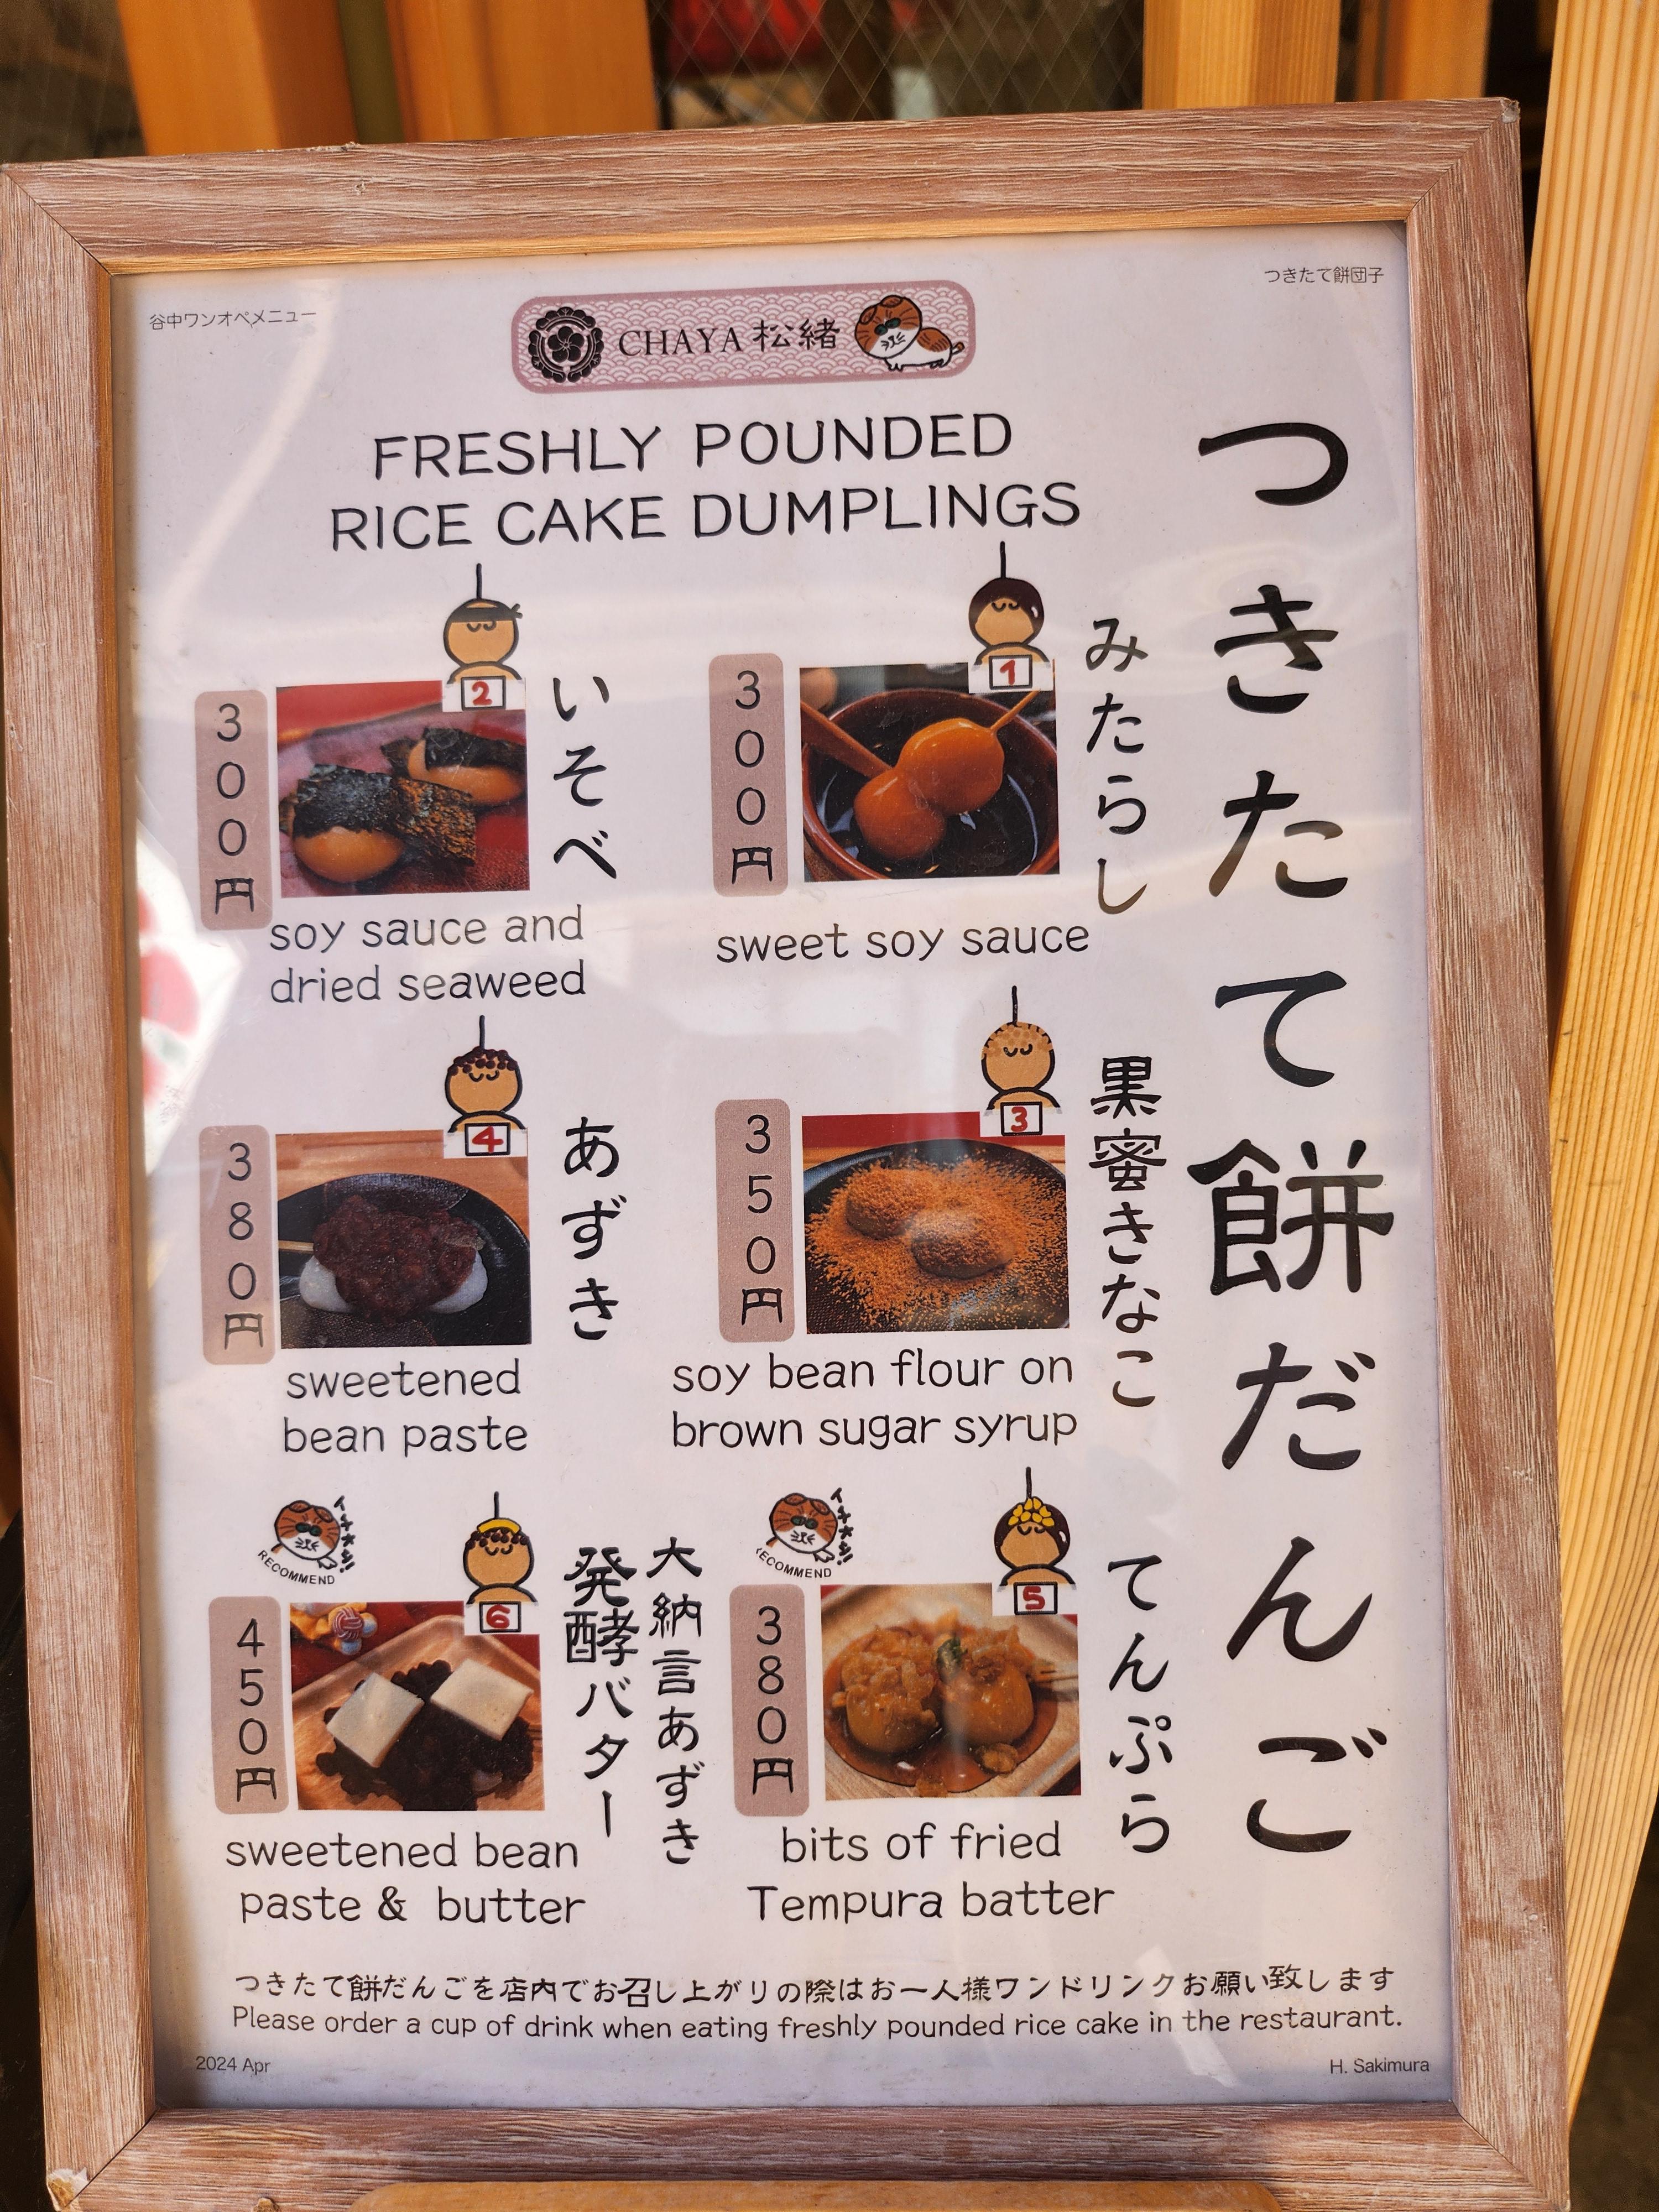 谷中ワンオペメニュー
つきたて餅団子
CHAYA 松緒
FRESHLY POUNDED
RICE CAKE DUMPLINGS
つきたて餅だんご
1
みたらし
300円
sweet soy sauce
2
いそべ
300円
soy sauce and
dried seaweed
3
黒蜜きなこ
350円
soy bean flour on
brown sugar syrup
4
あずき
380円
sweetened
bean paste
5
てんぷら
380円
イチオシ!!
RECOMMEND
bits of fried
Tempura batter
6
大納言あずき
発酵バター
450円
イチオシ!!
RECOMMEND
sweetened bean
paste & butter
つきたて餅だんごを店内でお召し上がりの際はお一人様ワンドリンクお願い致します
Please order a cup of drink when eating freshly pounded rice cake in the restaurant.
2024 Apr
H. Sakimura